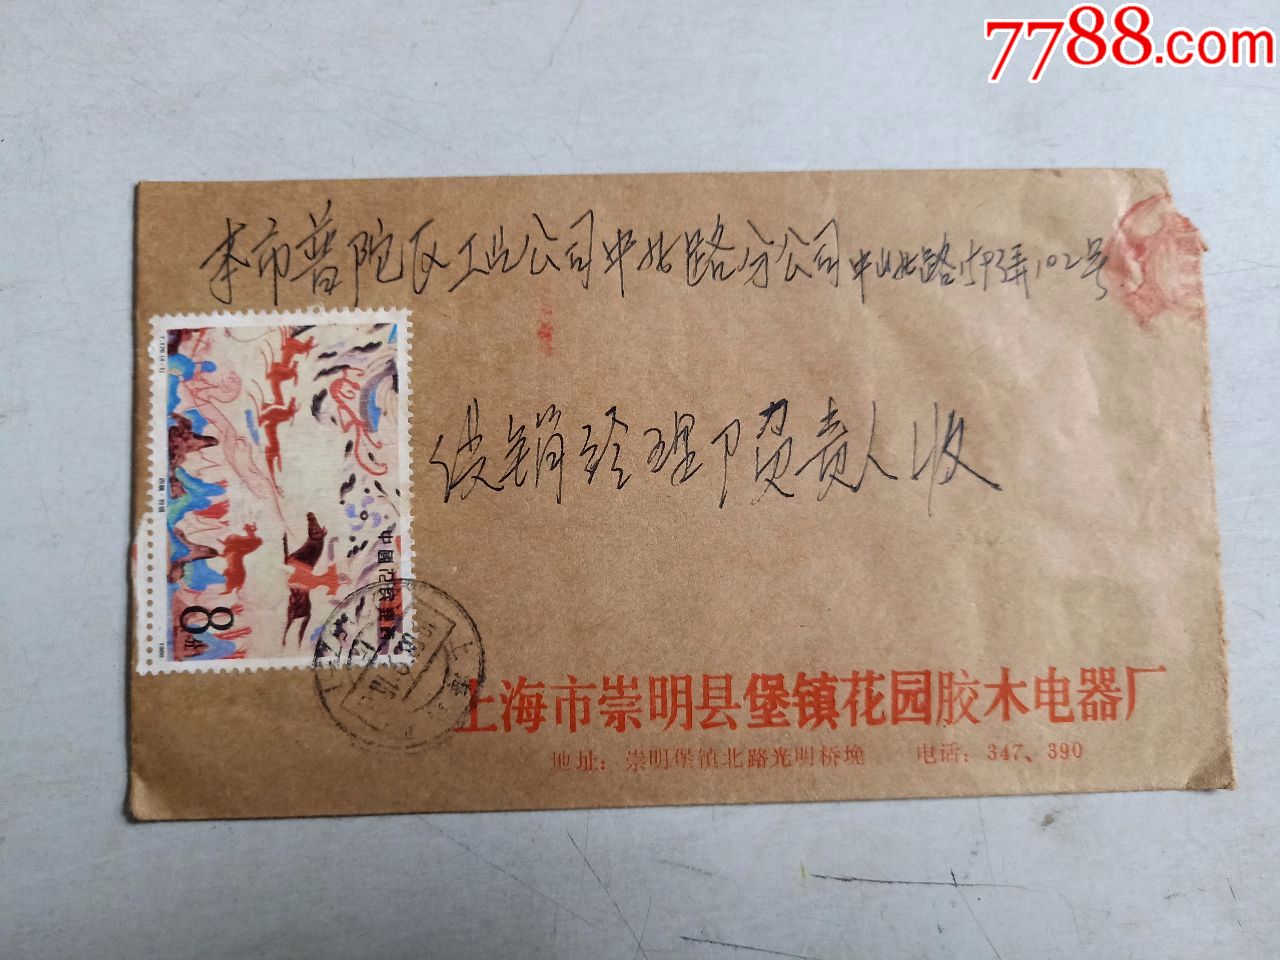 7788.com
本市普陀区工业公司中北路分公司中山北路1593弄102号
供销经理部负责人收
T.126.(4-1)
西魏·狩猎
中国人民邮政
8分
1988
上海
上海市崇明县堡镇花园胶木电器厂
地址：崇明堡镇北路光明桥堍 电话：347、390